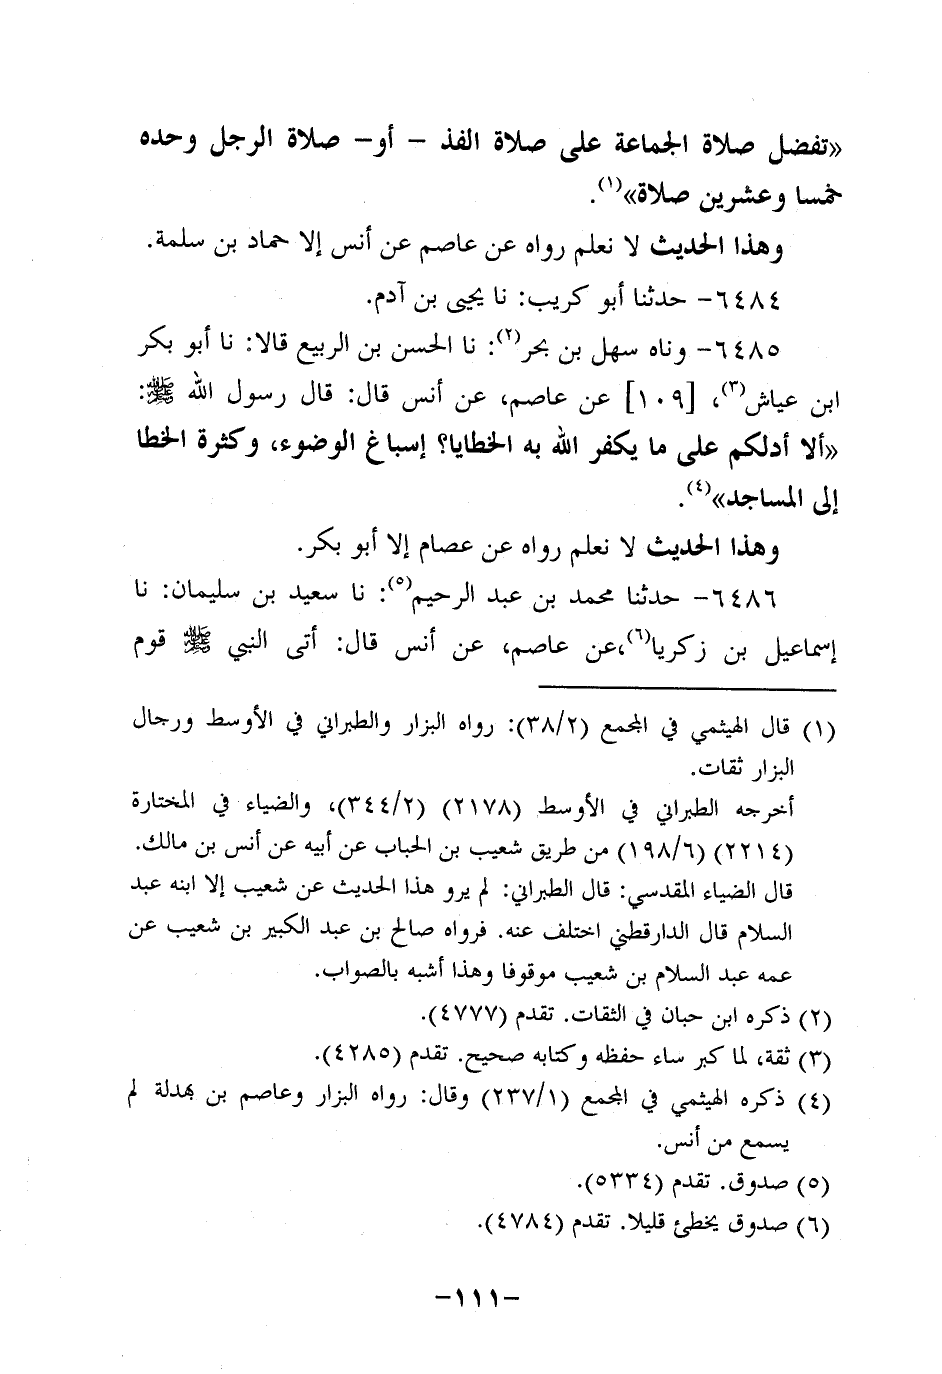 «تفضل صلاة الجماعة على صلاة الفذ - أو- صلاة الرجل وحده
خمسا وعشرين صلاة»(١).
وهذا الحديث لا نعلم رواه عن عاصم عن أنس إلا حماد بن سلمة.
٦٤٨٤- حدثنا أبو كريب: نا يحيى بن آدم.
٦٤٨٥- وناه سهل بن بحر(٢): نا الحسن بن الربيع قالا: نا أبو بكر
ابن عياش(٣)، [١٠٩] عن عاصم، عن أنس قال: قال رسول الله ﷺ:
«ألا أدلكم على ما يكفر الله به الخطايا؟ إسباغ الوضوء، وكثرة الخطا
إلى المساجد»(٤).
وهذا الحديث لا نعلم رواه عن عصام إلا أبو بكر.
٦٤٨٦- حدثنا محمد بن عبد الرحيم(٥): نا سعيد بن سليمان: نا
إسماعيل بن زكريا(٦)،عن عاصم، عن أنس قال: أتى النبي ﷺ قوم
(١) قال الهيثمي في المجمع (٣٨/٢): رواه البزار والطبراني في الأوسط ورجال
البزار ثقات.
أخرجه الطبراني في الأوسط (٢١٧٨) (٣٤٤/٢)، والضياء في المختارة
(٢٢١٤) (١٩٨/٦) من طريق شعيب بن الحباب عن أبيه عن أنس بن مالك.
قال الضياء المقدسي: قال الطبراني: لم يرو هذا الحديث عن شعيب إلا ابنه عبد
السلام قال الدارقطني اختلف عنه. فرواه صالح بن عبد الكبير بن شعيب عن
عمه عبد السلام بن شعيب موقوفا وهذا أشبه بالصواب.
(٢) ذكره ابن حبان في الثقات. تقدم (٤٧٧٧).
(٣) ثقة، لما كبر ساء حفظه وكتابه صحيح. تقدم (٤٢٨٥).
(٤) ذكره الهيثمي في المجمع (٢٣٧/١) وقال: رواه البزار وعاصم بن بهدلة لم
يسمع من أنس.
(٥) صدوق. تقدم (٥٣٣٤).
(٦) صدوق يخطئ قليلا. تقدم (٤٧٨٤).
-١١١-